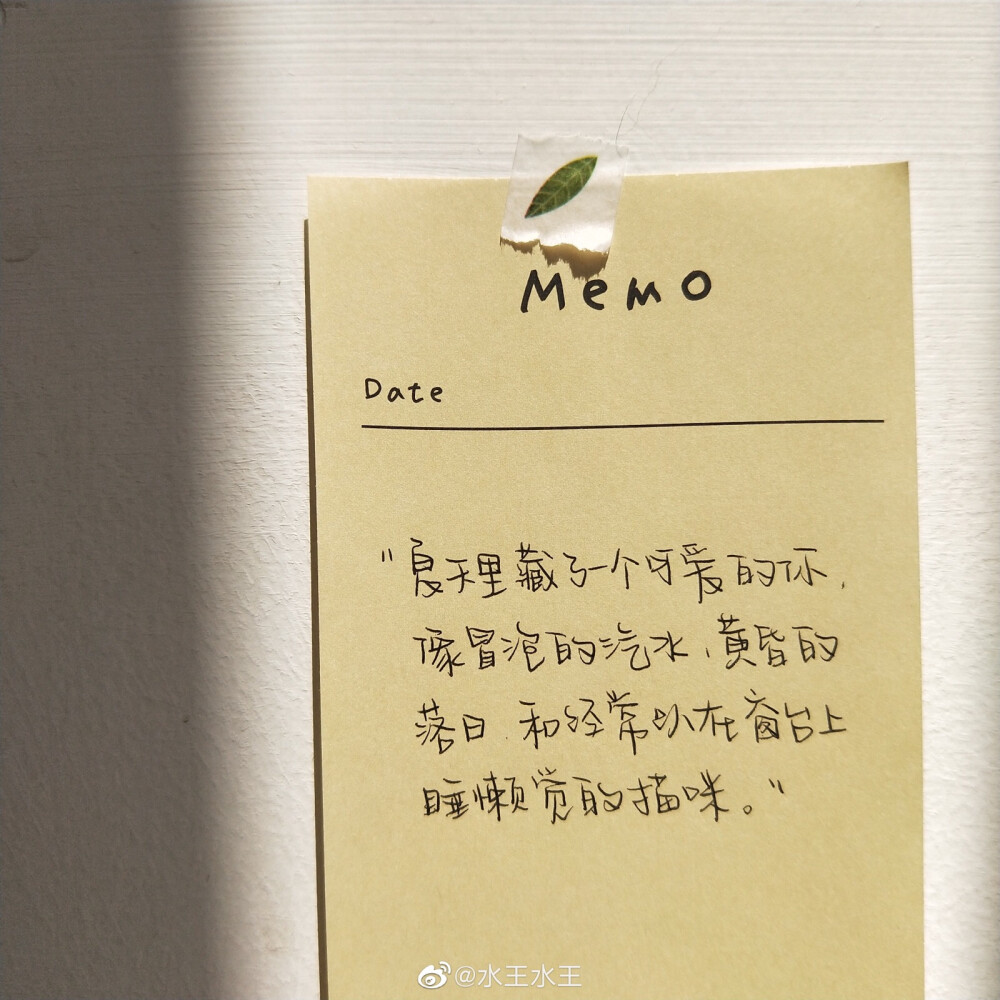 Memo
Date
“夏天里藏了一个可爱的你，
像冒泡的汽水，黄昏的
落日，和经常趴在窗台上
睡懒觉的猫咪。”
@水王水王